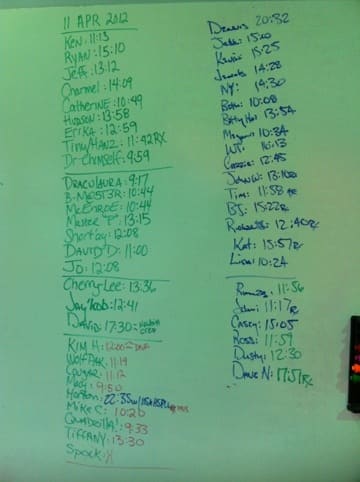 11 APR 2012
KEN: 11:13
RYAN: 15:10
Jeff: 13:12
Charmel: 14:09
CATHERINE: 10:49
HUDSON: 13:58
ERIKA: 12:59
Tiny/HANZ: 11:42RX
Dr. Chimself: 9:59
DRACULAURA: 9:17
B-MEST3R: 10:44
McENROE: 10:44
Master "P": 13:15
Shortay: 12:08
DAVID D: 11:00
JO: 12:08
Cherry-Lee: 13:36
Jay'kob: 12:41
DAVID: 17:30
KIM H: 12:00 - DNF
WOLFPAK: 11:19
COUGAR: 11:12
Mady: 9:50
22:35 w/
MIKE C: 10:26
9:33
TIFFANY: 13:30
Spock:
Dennis 20:32
15:10
Kevin: 15:25
14:28
NY: 14:30
Beth: 10:08
13:54
Megan: 10:34
16:13
Cassie: 12:45
John W: 13:10
Tim: 11:58
BJ: 15:22 Rx
12:40 Rx
Kat: 15:57 Rx
Lisa: 10:24
11:56
John: 11:17 Rx
Casey: 15:05
Ross: 11:59
Dusty: 12:30
Dave N: 17:51 Rx